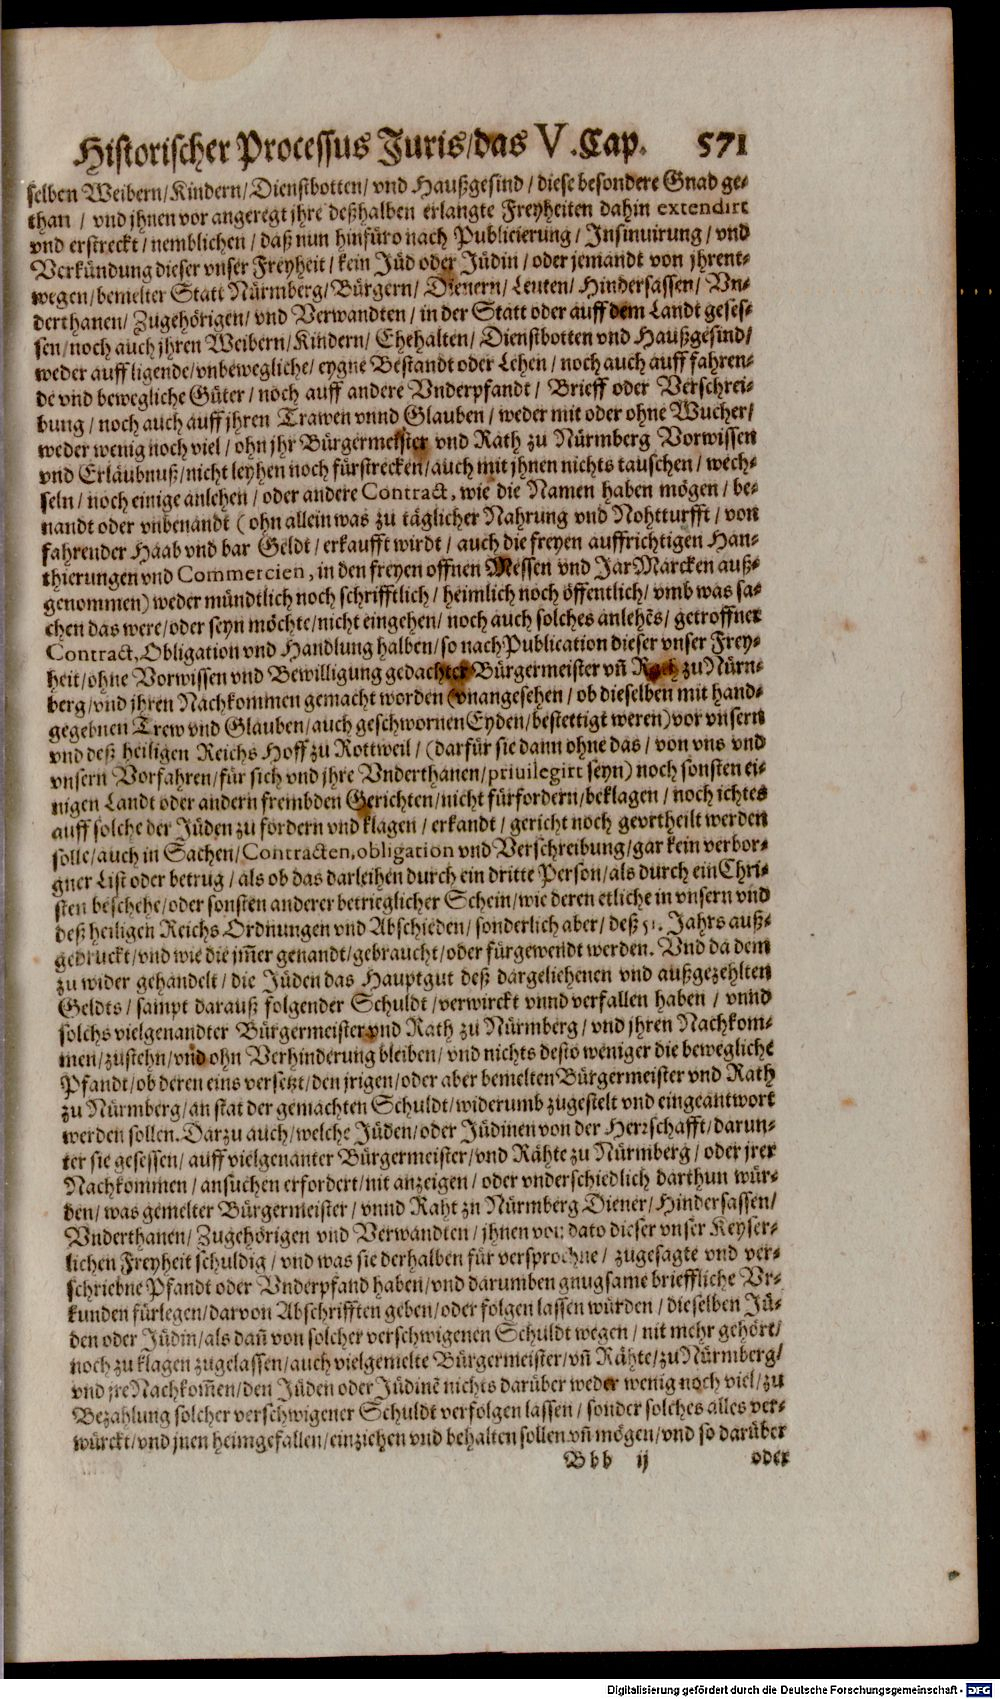 Historischer Processus Juris/das V. Cap. 571
selben Weibern/Kindern/Dienstbotten/vnd Haußgesind/diese besondere Gnad ge-
than / vnd jhnen vor angeregt jhre deßhalben erlangte Freyheiten dahin extendirt
vnd erstreckt/nemblichen/daß nun hinfüro nach Publicierung/Insinuirung/vnd
Verkündung dieser vnser Freyheit/kein Jüd oder Jüdin/oder jemandt von jhrent-
wegen/bemelter Statt Nürmberg/Bürgern/Dienern/Leuten/Hindersassen/Vn-
derthanen/Zugehörigen/vnd Verwandten/in der Statt oder auff dem Landt geses-
sen/noch auch jhren Weibern/Kindern/Ehehalten/Dienstbotten vnd Haußgesind/
weder auff ligende/vnbewegliche/eygne Bestandt oder Lehen/noch auch auff fahren-
de vnd bewegliche Güter/noch auff andere Vnderpfandt/Brieff oder Verschrei-
bung/noch auch auff jhren Trawen vnnd Glauben/weder mit oder ohne Wucher/
weder wenig noch viel/ohn jhr Bürgermeister vnd Rath zu Nürmberg Vorwissen
vnd Erläubnuß/nicht leyhen noch fürstrecken/auch mit jhnen nichts tauschen/wech-
seln/noch einige anlehen/oder andere Contract, wie die Namen haben mögen/be-
nandt oder vnbenandt (ohn allein was zu täglicher Nahrung vnd Nohtturfft/von
fahrender Haab vnd bar Geldt/erkaufft wirdt/auch die freyen auffrichtigen Han-
thierungen vnd Commercien, in den freyen offnen Messen vnd Jar Marcken auß-
genommen) weder mündtlich noch schrifftlich/heimlich noch öffentlich/vmb was sa-
chen das were/oder seyn möchte/nicht eingehen/noch auch solches anlehẽs/getroffner
Contract, Obligation vnd Handlung halben/so nach Publication dieser vnser Frey-
heit/ohne Vorwissen vnd Bewilligung gedachter Bürgermeister vñ Rath zu Nürn-
berg/vnd jhren Nachkommen gemacht worden (vnangesehen/ob dieselben mit hand-
gegebnen Trew vnd Glauben/auch geschwornen Eyden/bestettigt weren) vor vnsern
vnd deß heiligen Reichs Hoff zu Rottweil/(darfür sie dann ohne das/von vns vnd
vnsern Vorfahren/für sich vnd jhre Vnderthanen/priuilegirt seyn) noch sonsten ei-
nigen Landt oder andern frembden Gerichten/nicht fürfordern/beklagen/noch ichtes
auff solche der Jüden zu fordern vnd klagen/erkandt/gericht noch gevrtheilt werden
solle/auch in Sachen/Contracten, obligation vnd Verschreibung/gar kein verbor-
gner List oder betrug/als ob das darleihen durch ein dritte Person/als durch ein Chri-
sten beschehe/oder sonsten anderer betrieglicher Schein/wie deren etliche in vnsern vnd
deß heiligen Reichs Ordnungen vnd Abschieden/sonderlich aber/deß 51. Jahrs auß-
gedruckt/vnd wie die jm̃er genandt/gebraucht/oder fürgewendt werden. Vnd da dem
zu wider gehandelt/die Jüden das Hauptgut deß dargeliehenen vnd außgezehlten
Geldts/sampt darauß folgender Schuldt/verwirckt vnnd verfallen haben/vnnd
solchs vielgenandter Bürgermeister vnd Rath zu Nürmberg/vnd jhren Nachkom-
men/zustehn/vnd ohn Verhinderung bleiben/vnd nichts desto weniger die bewegliche
Pfandt/ob deren eins versetzt/den jrigen/oder aber bemelten Bürgermeister vnd Rath
zu Nürmberg/an stat der gemachten Schuldt/widerumb zugestelt vnd eingeantwort
werden sollen. Darzu auch/welche Jüden/oder Jüdinen von der Herrschafft/darun-
ter sie gesessen/auff vielgenanter Bürgermeister/vnd Rähte zu Nürmberg/oder jrer
Nachkommen/ansuchen erfordert/nit anzeigen/oder vnderschiedlich darthun wür-
den/was gemelter Bürgermeister/vnnd Raht zu Nürmberg Diener/Hindersassen/
Vnderthanen/Zugehörigen vnd Verwandten/jhnen von dato dieser vnser Keyser-
lichen Freyheit schuldig/vnd was sie derhalben für versprochne/zugesagte vnd ver-
schriebne Pfandt oder Vnderpfand haben/vnd darumben gnugsame brieffliche Vr-
kunden fürlegen/darvon Abschrifften geben/oder folgen lassen würden/dieselben Jü-
den oder Jüdin/als dañ von solcher verschwigenen Schuldt wegen/nit mehr gehört/
noch zu klagen zugelassen/auch vielgemelte Bürgermeister/vñ Rähte/zu Nürmberg/
vnd jre Nachkom̃en/den Jüden oder Jüdinẽ nichts darüber weder wenig noch viel/zu
Bezahlung solcher verschwigener Schuldt verfolgen lassen/sonder solches alles ver-
würckt/vnd jnen heimgefallen/einziehen vnd behalten sollen vñ mögen/vnd so darüber
Bbb ij oder
Digitalisierung gefördert durch die Deutsche Forschungsgemeinschaft - DFG